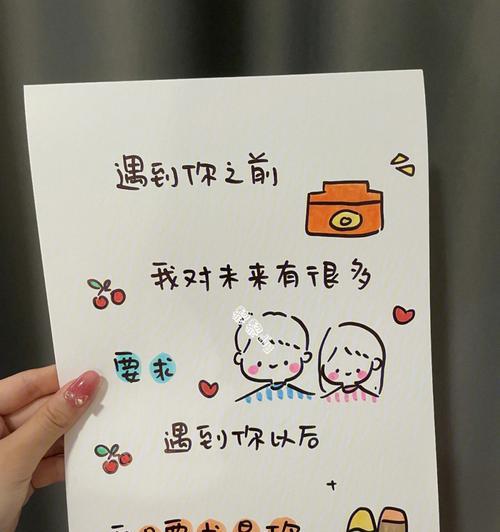 遇到你之前
我对未来有很多
要求
遇到你以后
要求是你